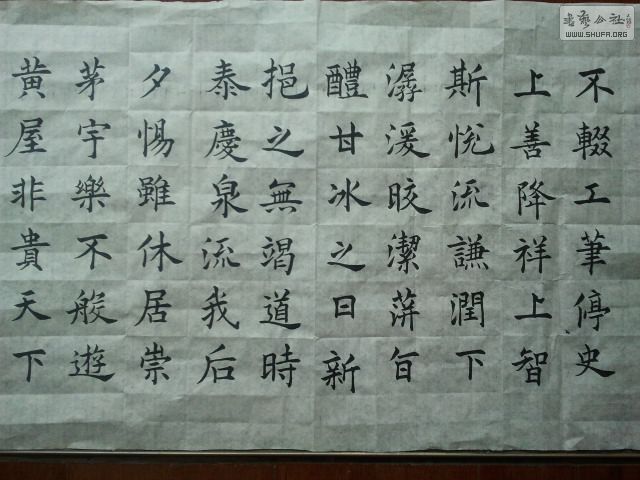 不輟工筆停史
上善降祥上智
斯悅流謙潤下
潺湲皎潔蓱旨
醴甘冰之日新
挹之無竭道時
泰慶泉流我后
夕惕雖休居崇
茅宇樂不般遊
黃屋非貴天下
書藝公社
WWW.SHUFA.ORG